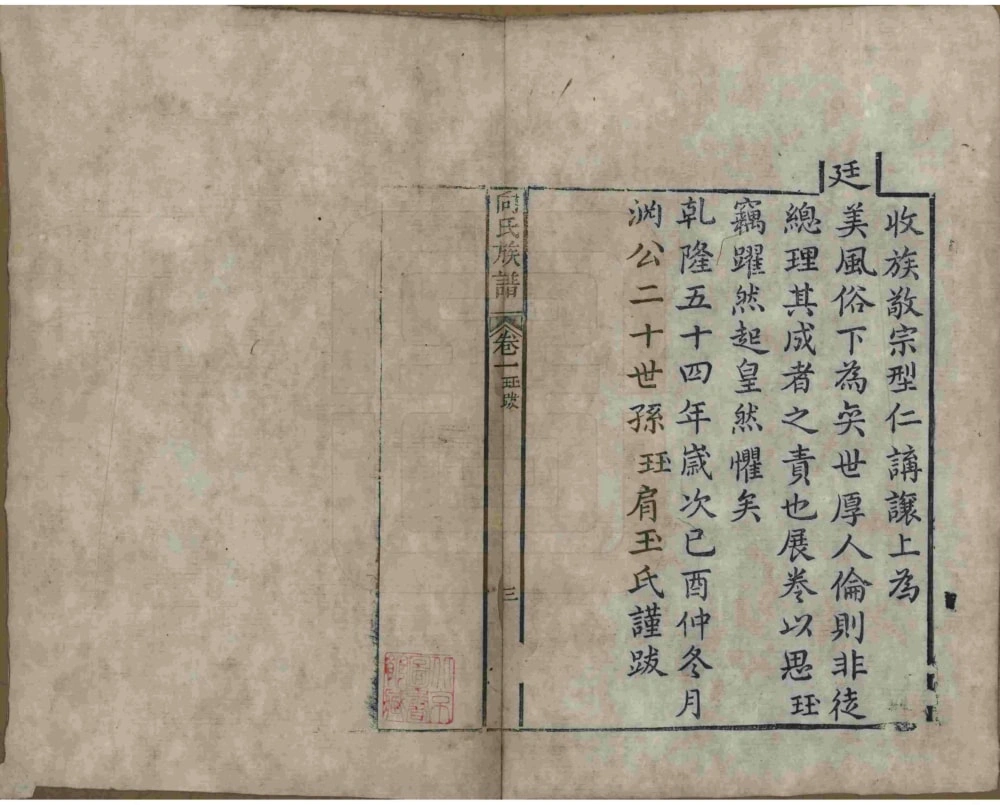 收族敬宗型仁講讓上為
廷
美風俗下為奕世厚人倫則非徒
總理其成者之責也展卷以思玨
竊躍然起皇然懼矣
乾隆五十四年歲次己酉仲冬月
渊公二十世孫玨肩玉氏謹跋
向氏族譜
卷一 玨跋
三